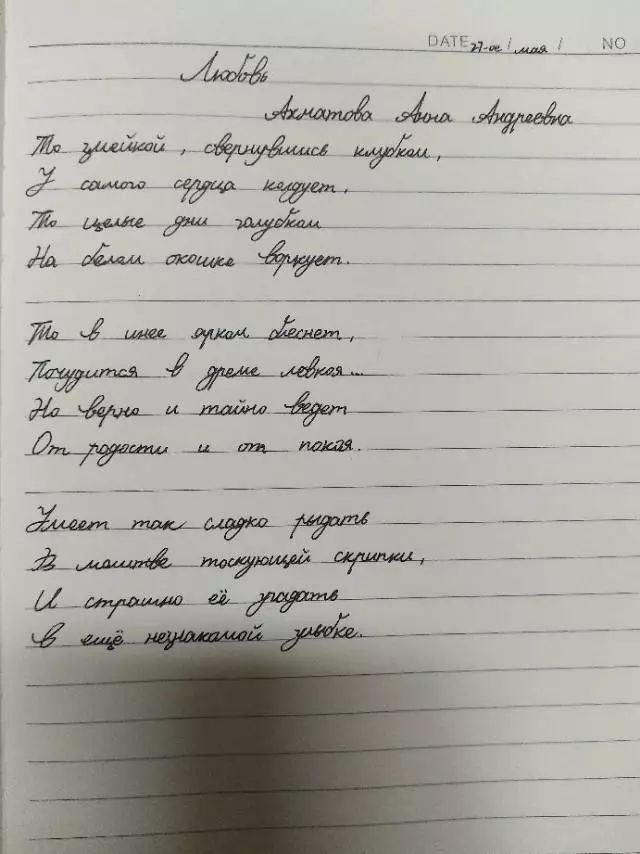 DATE 27-ое / мая / NO
Любовь
Ахматова Анна Андреевна
То змейкой, свернувшись клубком,
У самого сердца колдует,
То целые дни голубком
На белом окошке воркует.
То в инее ярком блеснет,
Почудится в дреме левкоя...
Но верно и тайно ведет
От радости и от покоя.
Умеет так сладко рыдать
В молитве тоскующей скрипки,
И страшно её угадать
В ещё незнакомой улыбке.